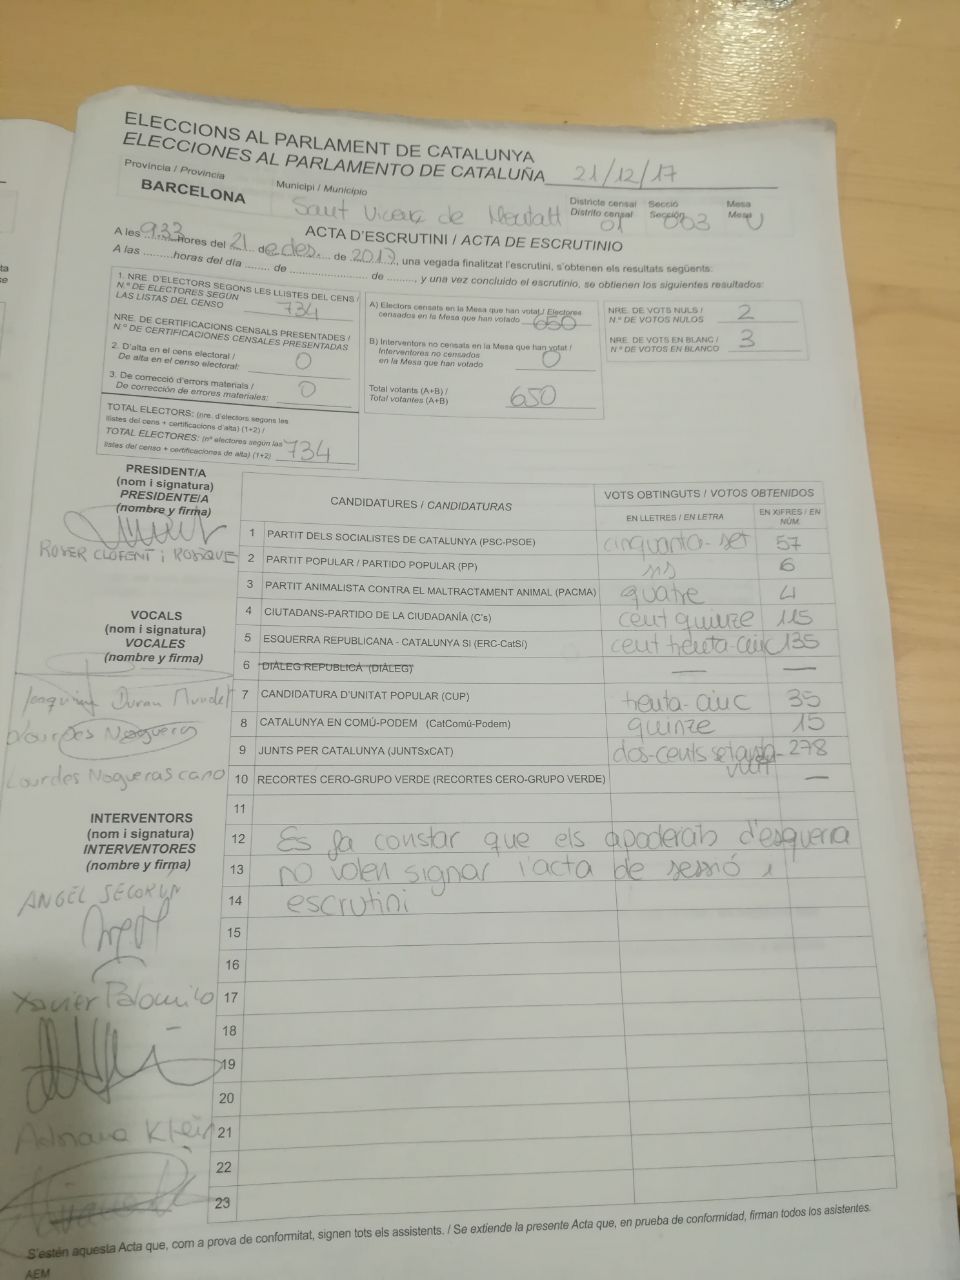 ELECCIONS AL PARLAMENT DE CATALUNYA
ELECCIONES AL PARLAMENTO DE CATALUÑA 21/12/17
Província / Provincia
BARCELONA
Municipi / Municipio
Sant Vicenç de Montalt
Districte censal
Distrito censal 01
Secció
Sección 003
Mesa
Mesa U
ACTA D'ESCRUTINI / ACTA DE ESCRUTINIO
A les 9.33 hores del 21 de des. de 2017, una vegada finalitzat l'escrutini, s'obtenen els resultats següents:
A las ......... horas del día ........ de ........................ de ........., y una vez concluido el escrutinio, se obtienen los siguientes resultados:
1. NRE. D'ELECTORS SEGONS LES LLISTES DEL CENS /
N.º DE ELECTORES SEGÚN
LAS LISTAS DEL CENSO 734
NRE. DE CERTIFICACIONS CENSALS PRESENTADES /
N.º DE CERTIFICACIONES CENSALES PRESENTADAS
2. D'alta en el cens electoral /
De alta en el censo electoral: 0
3. De correcció d'errors materials /
De corrección de errores materiales: 0
TOTAL ELECTORS: (nre. d'electors segons les
llistes del cens + certificacions d'alta) (1+2) /
TOTAL ELECTORES: (nº electores según las
listas del censo + certificaciones de alta) (1+2) 734
A) Electors censats en la Mesa que han votat / Electores
censados en la Mesa que han votado 650
B) Interventors no censats en la Mesa que han votat /
Interventores no censados
en la Mesa que han votado 0
Total votants (A+B) /
Total votantes (A+B) 650
NRE. DE VOTS NULS /
N.º DE VOTOS NULOS 2
NRE. DE VOTS EN BLANC /
N.º DE VOTOS EN BLANCO 3
PRESIDENT/A
(nom i signatura)
PRESIDENTE/A
(nombre y firma)
ROGER CLOFENT i ROSIQUE
VOCALS
(nom i signatura)
VOCALES
(nombre y firma)
Joaquima Duran Mundet
Lourdes Nogueras
Lourdes Nogueras cano
INTERVENTORS
(nom i signatura)
INTERVENTORES
(nombre y firma)
ANGEL
Xavier Palomino
Adriana Klein
CANDIDATURES / CANDIDATURAS
VOTS OBTINGUTS / VOTOS OBTENIDOS
EN LLETRES / EN LETRA
EN XIFRES / EN NÚM.
1 PARTIT DELS SOCIALISTES DE CATALUNYA (PSC-PSOE) cinquanta-set 57
2 PARTIT POPULAR / PARTIDO POPULAR (PP) sis 6
3 PARTIT ANIMALISTA CONTRA EL MALTRACTAMENT ANIMAL (PACMA) quatre 4
4 CIUTADANS-PARTIDO DE LA CIUDADANÍA (C's) cent quinze 115
5 ESQUERRA REPUBLICANA - CATALUNYA SÍ (ERC-CatSí) cent trenta-cinc 135
6 DIÀLEG REPUBLICÀ (DIÀLEG) — —
7 CANDIDATURA D'UNITAT POPULAR (CUP) trenta-cinc 35
8 CATALUNYA EN COMÚ-PODEM (CatComú-Podem) quinze 15
9 JUNTS PER CATALUNYA (JUNTSxCAT) dos-cents setanta-vuit 278
10 RECORTES CERO-GRUPO VERDE (RECORTES CERO-GRUPO VERDE) —
11
12 Es fa constar que els apoderats d'esquerra
13 no volen signar l'acta de sessió i
14 escrutini
15
16
17
18
19
20
21
22
23
S'estén aquesta Acta que, com a prova de conformitat, signen tots els assistents. / Se extiende la presente Acta que, en prueba de conformidad, firman todos los asistentes.
AEM